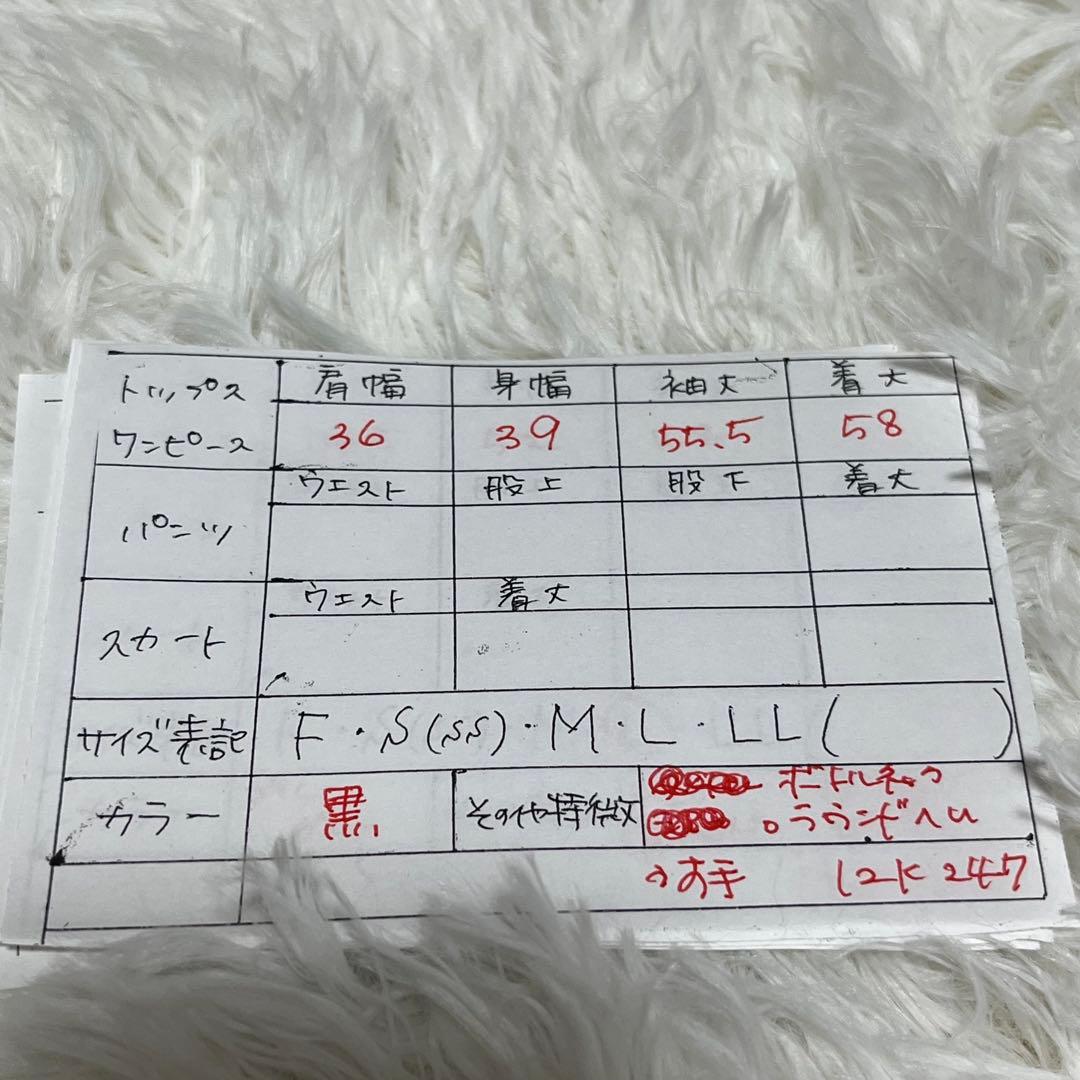 トップス 肩幅 身幅 袖丈 着丈
ワンピース 36 39 55.5 58
パンツ ウエスト 股上 股下 着丈
スカート ウエスト 着丈
サイズ表記 F・S(SS)・M・L・LL( )
カラー 黒 その他特徴 ボトルネック
。ラウンドヘム
うす手 12K247